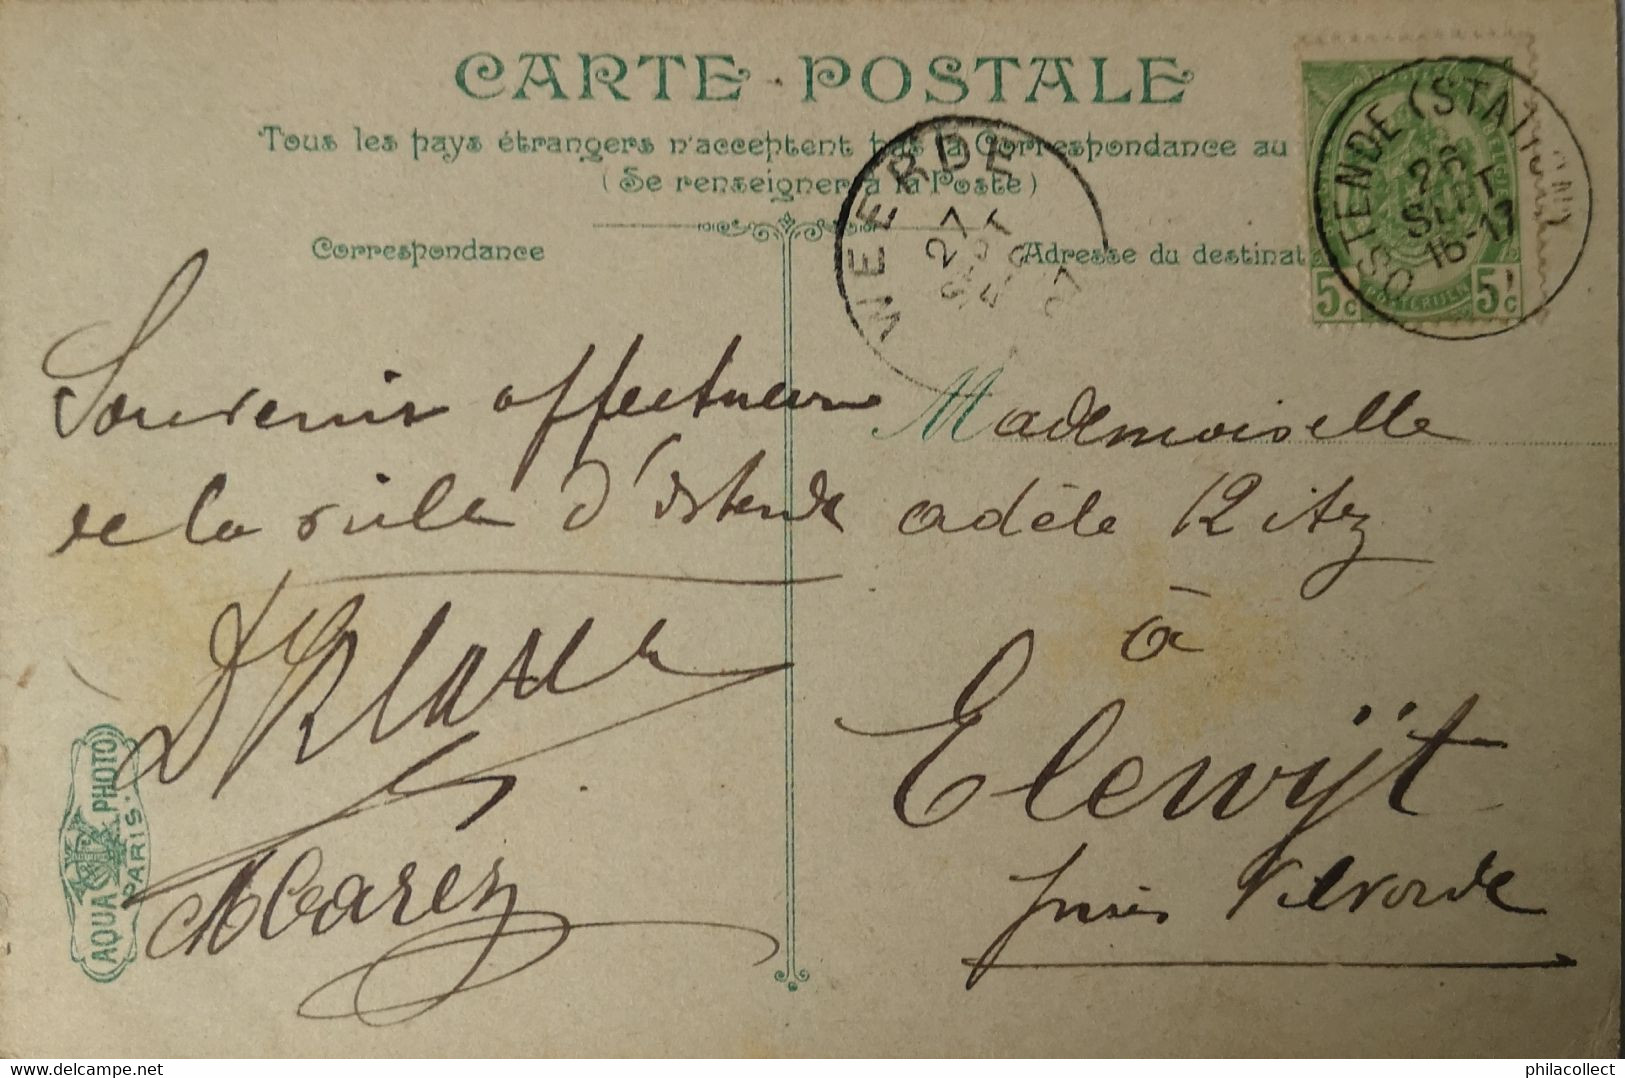 CARTE POSTALE
Tous les pays étrangers n'acceptent pas la Correspondance au
(Se renseigner à la Poste)
Correspondance
Adresse du destinat
WEERDE
27
SEPT
07
OSTENDE (STATION)
26
SEPT
16-17
5c
POSTERIJEN
5c
Souvenir affectueux
de la ville d'Ostende
Mademoiselle
adèle Ritz
à
Elewijt
près Vilvorde
AQUA PHOTO
PARIS
philacollect